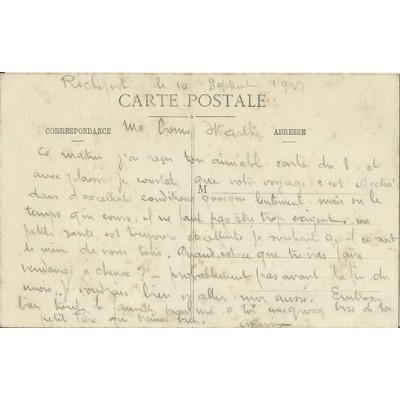 Rochefort le 10 Septembre 19
CARTE POSTALE
CORRESPONDANCE Ma ADRESSE
Ce matin j'ai reçu ton aimable carte du 8. et
avec plaisir je constate que votre voyage c'est
M
dans d'excellent conditions quoique lentement. mais vu le
temps qui cours. il ne faut pas être trop exigent. ma
petite santé est toujours excellente je souhait qu'il en soit
de même de vous tous. Quand est-ce que tu vas faire
vendange à probablement pas avant la fin du
mois. je voudrais bien y aller moi aussi. Embrasse
bien toute la famille pour moi a toi une grosse bise de ton
petit qui t'aime bien.